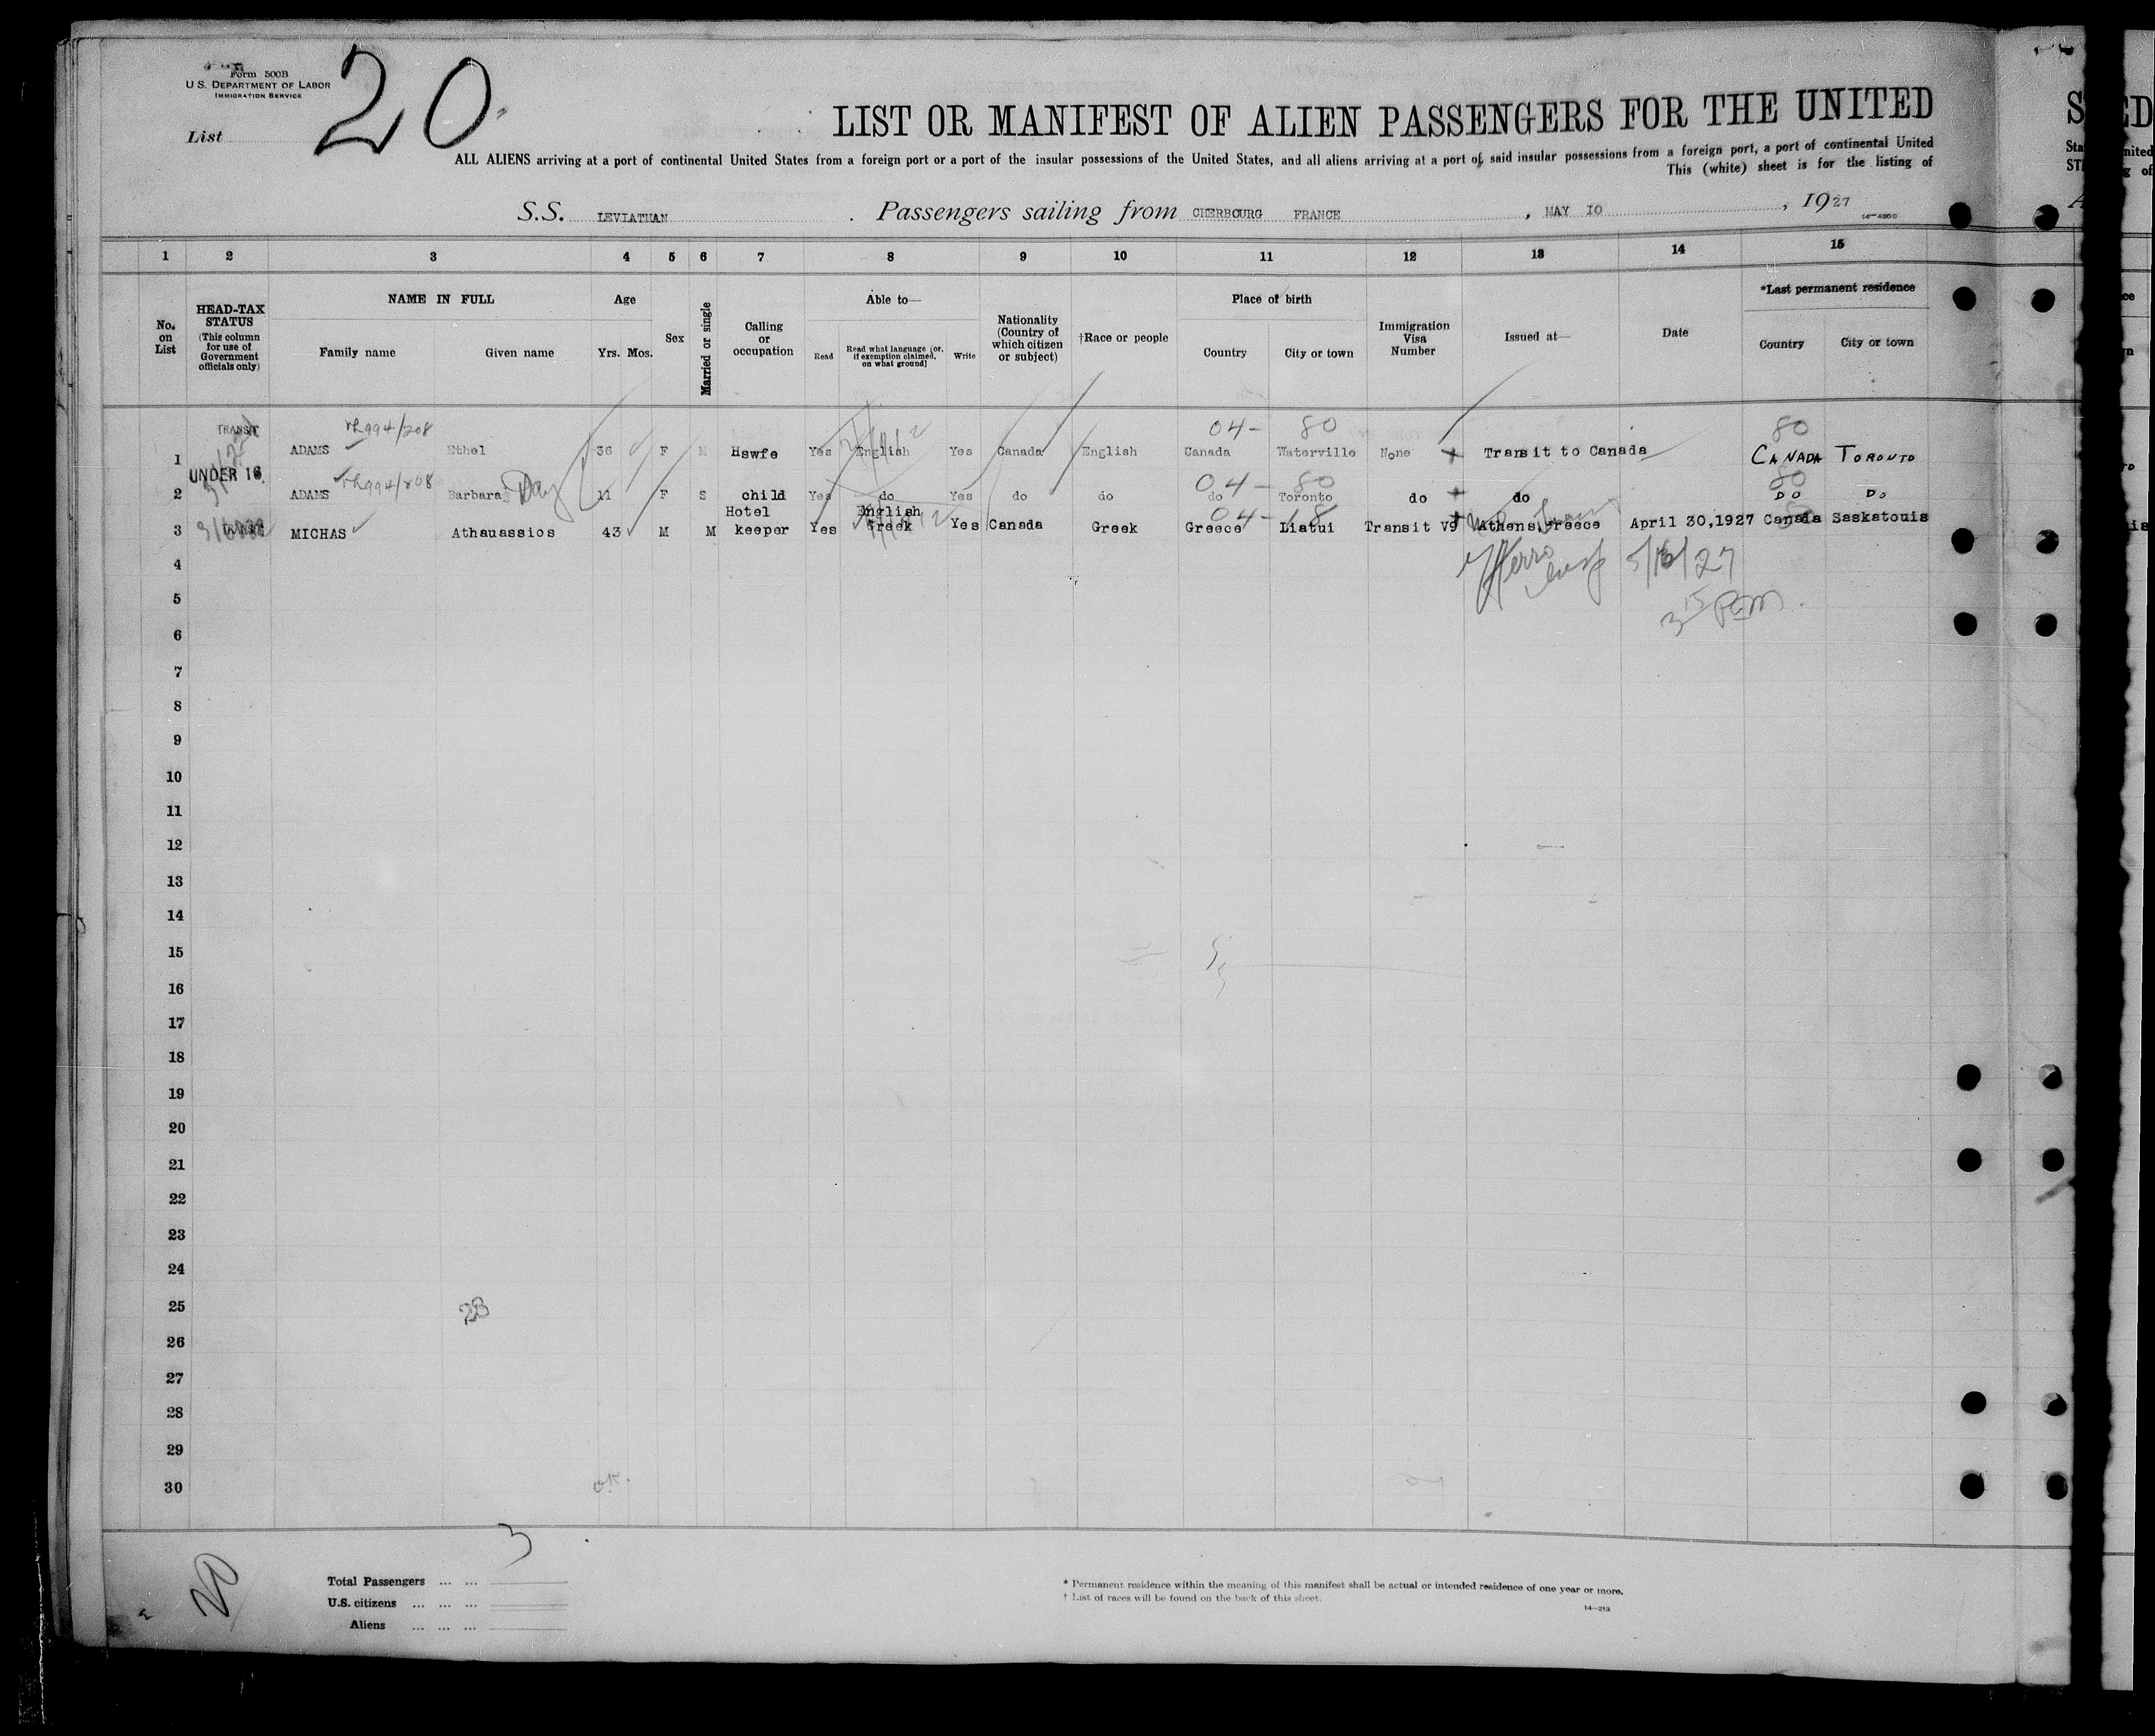 Form 500B
U.S. DEPARTMENT OF LABOR
IMMIGRATION SERVICE
List 20
LIST OR MANIFEST OF ALIEN PASSENGERS FOR THE UNITED
ALL ALIENS arriving at a port of continental United States from a foreign port or a port of the insular possessions of the United States, and all aliens arriving at a port of said insular possessions from a foreign port, a port of continental United
This (white) sheet is for the listing of
S.S. LEVIATHAN . Passengers sailing from CHERBOURG FRANCE , MAY 10 , 1927
1 2 3 4 5 6 7 8 9 10 11 12 13 14 15
No. on List
HEAD-TAX STATUS
(This column for use of Government officials only)
NAME IN FULL
Family name Given name
Age
Yrs. Mos.
Sex
Married or single
Calling or occupation
Able to—
Read
Read what language [or, if exemption claimed, on what ground]
Write
Nationality (Country of which citizen or subject)
†Race or people
Place of birth
Country City or town
Immigration Visa Number
Issued at—
Date
*Last permanent residence
Country City or town
TRANSIT 994/208 04- 80 80
1 ADAMS Ethel 36 F M Hswfe Yes English Yes Canada English Canada Waterville None Transit to Canada CANADA TORONTO
UNDER 16 994/208 04-80 80
2 ADAMS Barbara Day 11 F S child Yes do Yes do do do Toronto do do DO DO
04-18
3 MICHAS Athauassios 43 M M Hotel keeper Yes English Greek Yes Canada Greek Greece Liatui Transit V9 Athens,Greece April 30,1927 Canada Saskatouis
4 5/16/27
5 3 15 P.M.
6
7
8
9
10
11
12
13
14
15
16
17
18
19
20
21
22
23
24
25 28
26
27
28
29
30 OK.
3
20
Total Passengers ... ...
U.S. citizens ... ... ...
Aliens ... ... ...
* Permanent residence within the meaning of this manifest shall be actual or intended residence of one year or more.
† List of races will be found on the back of this sheet.
14—213